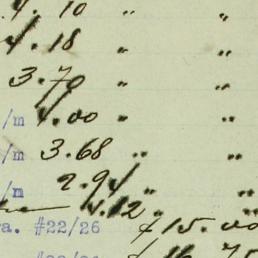 4.10 " "
4.18 " "
3.70 " "
/m 4.00 " "
/m 3.68 " "
/m 2.94 " "
4.12 " "
a. #22/26 £15.00